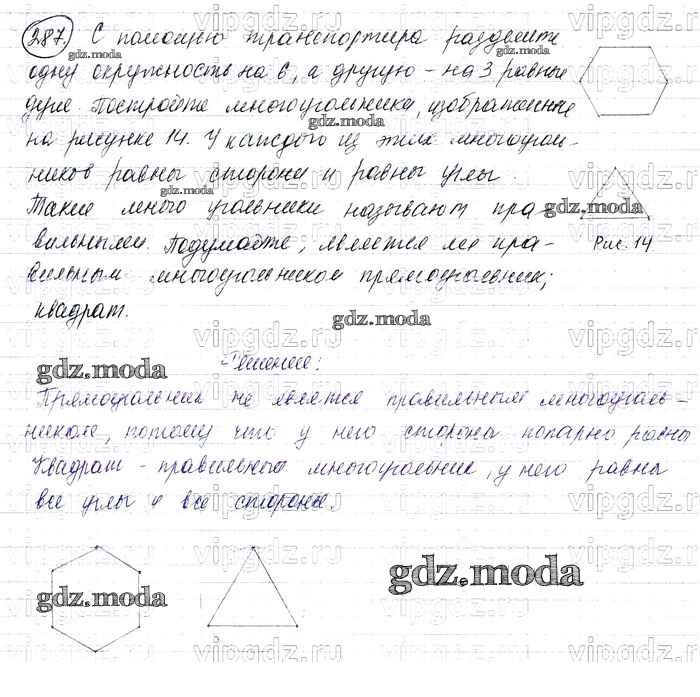 287. С помощью транспортира разделите
gdz.moda
одну окружность на 6, а другую – на 3 равные
дуги. Постройте многоугольники, изображенные
gdz.moda
на рисунке 14. У каждого из этих многоуголь-
ников равны стороны и равны углы.
gdz.moda
Такие много угольники называют пра-
gdz.moda
вильными. Подумайте, является ли пра-
Рис. 14
вильным многоугольником прямоугольник;
квадрат.
gdz.moda
Решение:
gdz.moda
Прямоугольник не является правильным многоуголь-
ником, потому что у него стороны попарно равны
Квадрат - правильный многоугольник, у него равны
все углы и все стороны.
gdz.moda
gdz.moda
vipgdz.ru